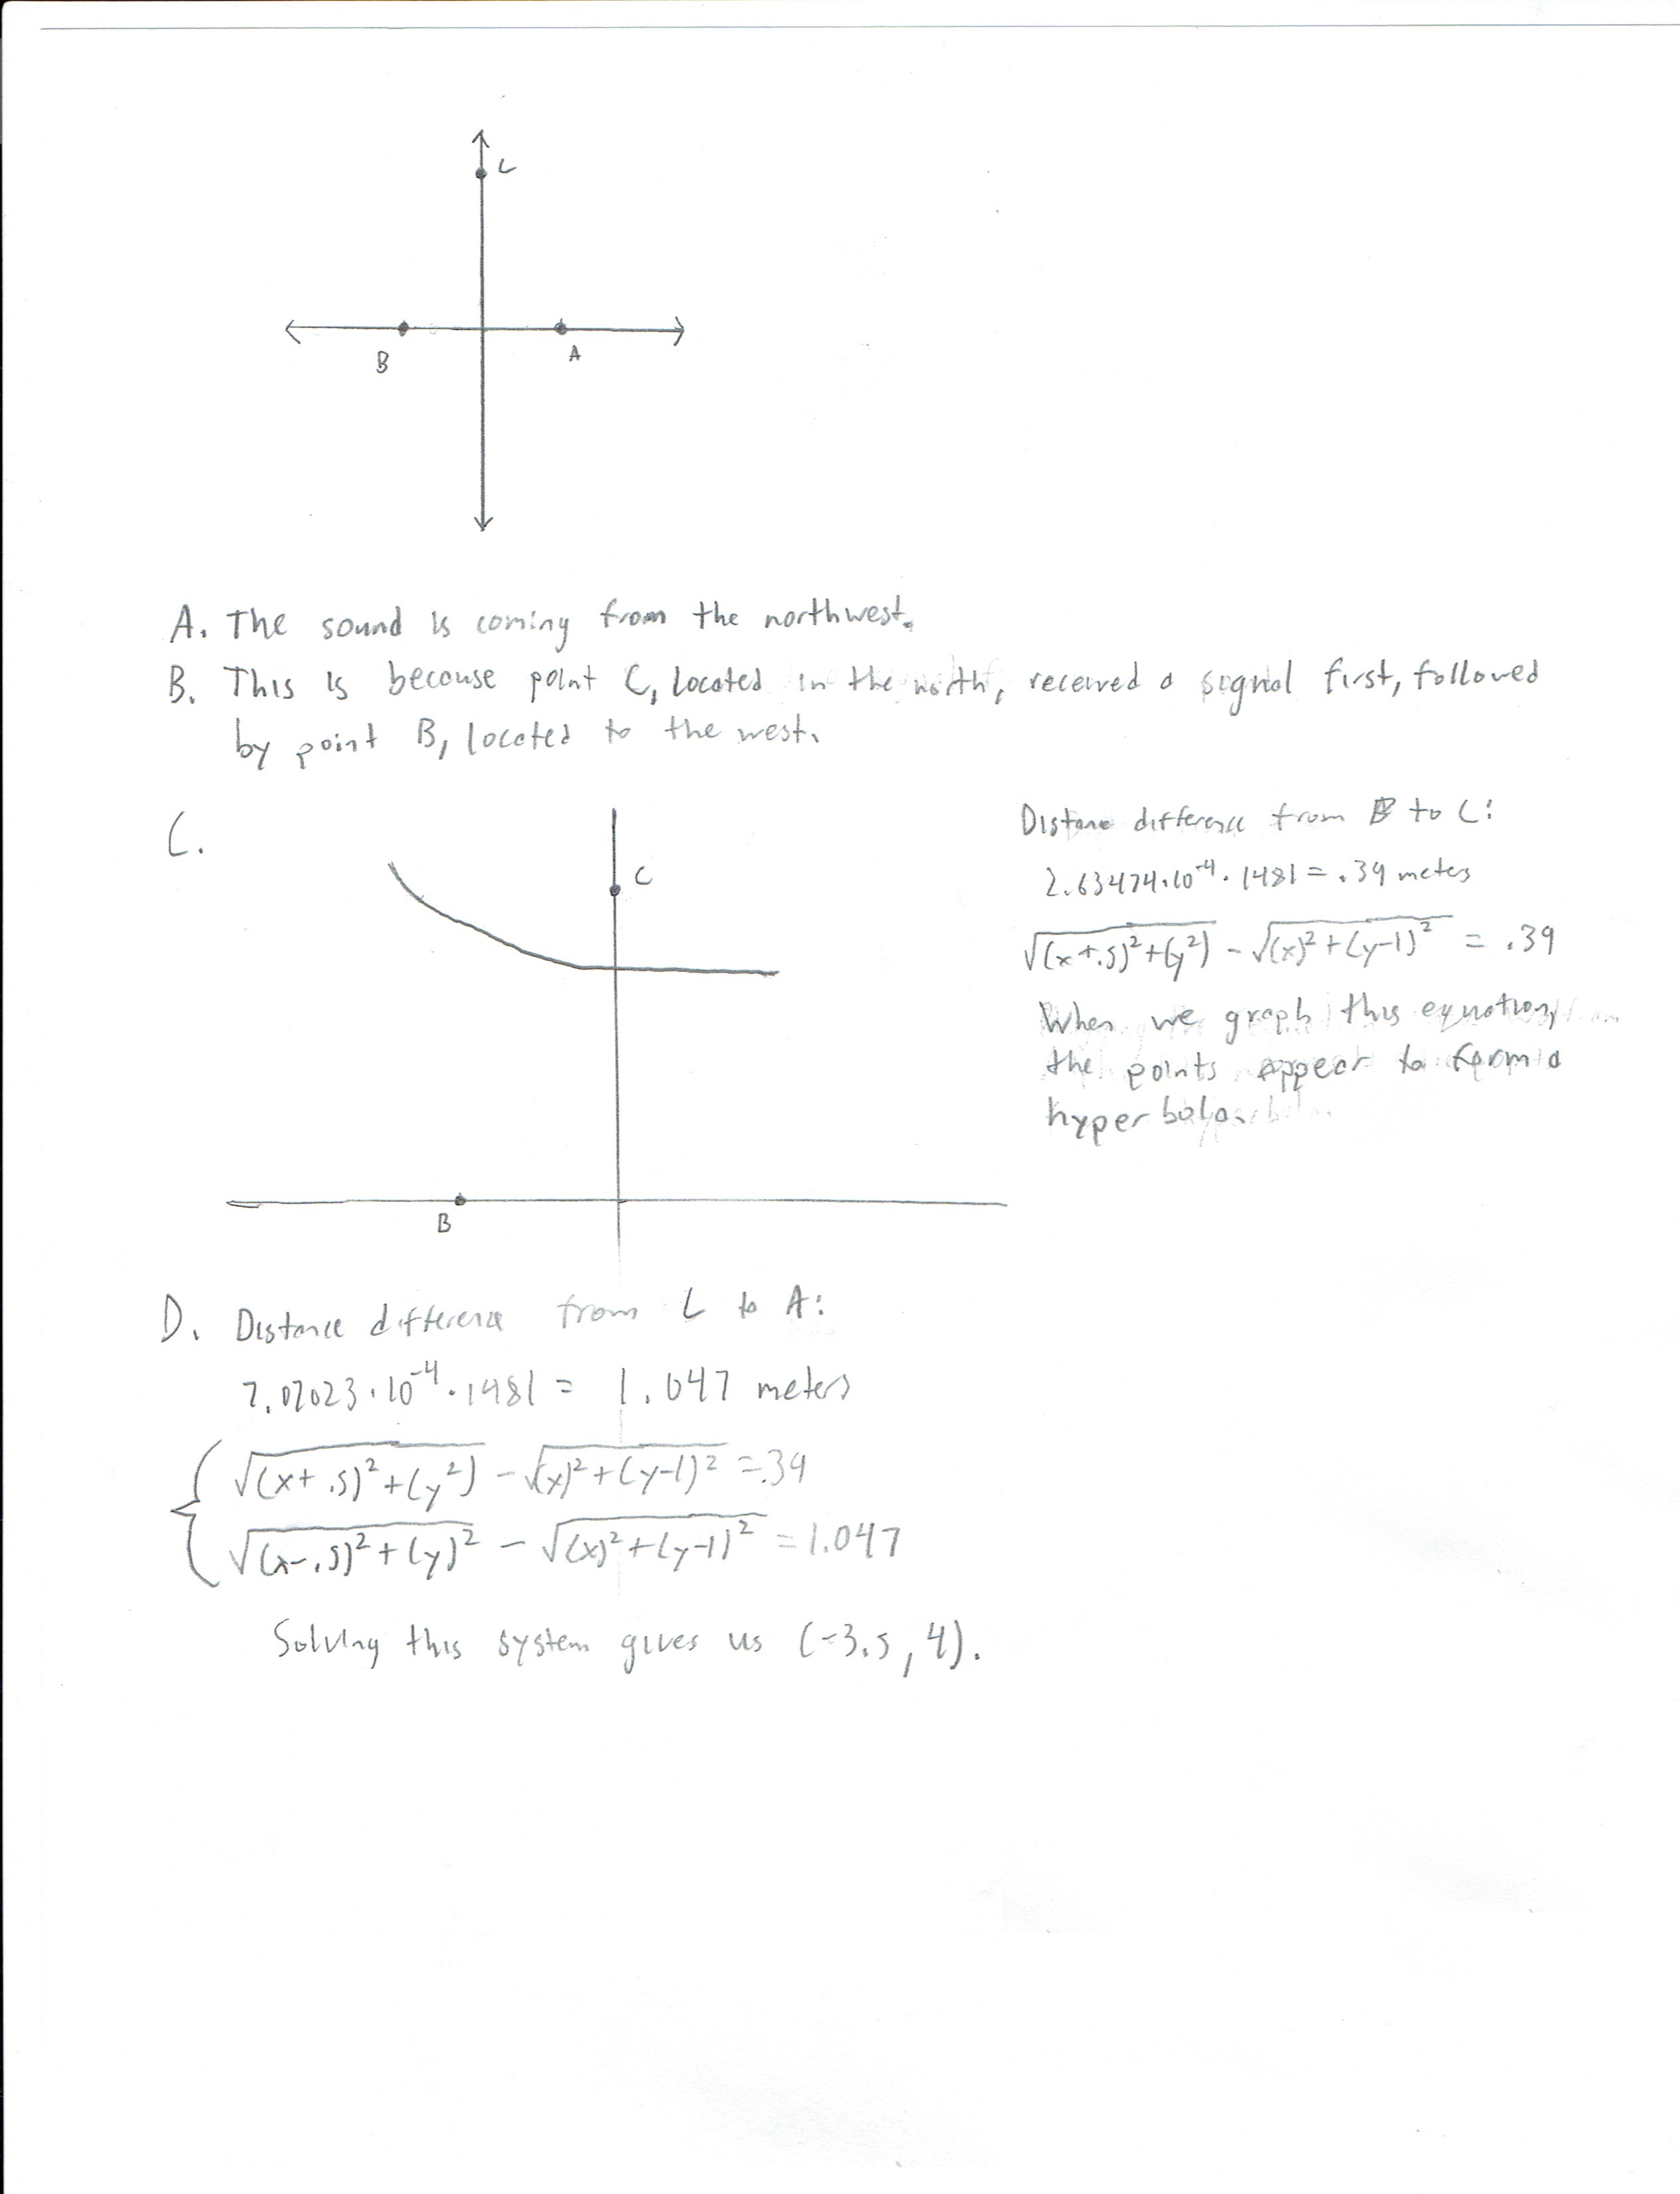 C
B
A
A. The sound is coming from the northwest.
B. This is because point C, located in the north, received a signal first, followed
by point B, located to the west.
C.
C
B
Distance difference from B to C:
2.63474·10⁻⁴·1481 = .39 meters
√((x+.5)²+(y²)) - √((x)²+(y-1)²) = .39
When we graph this equation,
the points appear to form a
hyperbola.
D. Distance difference from C to A:
7.07023·10⁻⁴·1481 = 1.047 meters
√((x+.5)²+(y²)) - √((x)²+(y-1)²) = .39
√((x-.5)²+(y)²) - √((x)²+(y-1)²) = 1.047
Solving this system gives us (-3.5, 4).